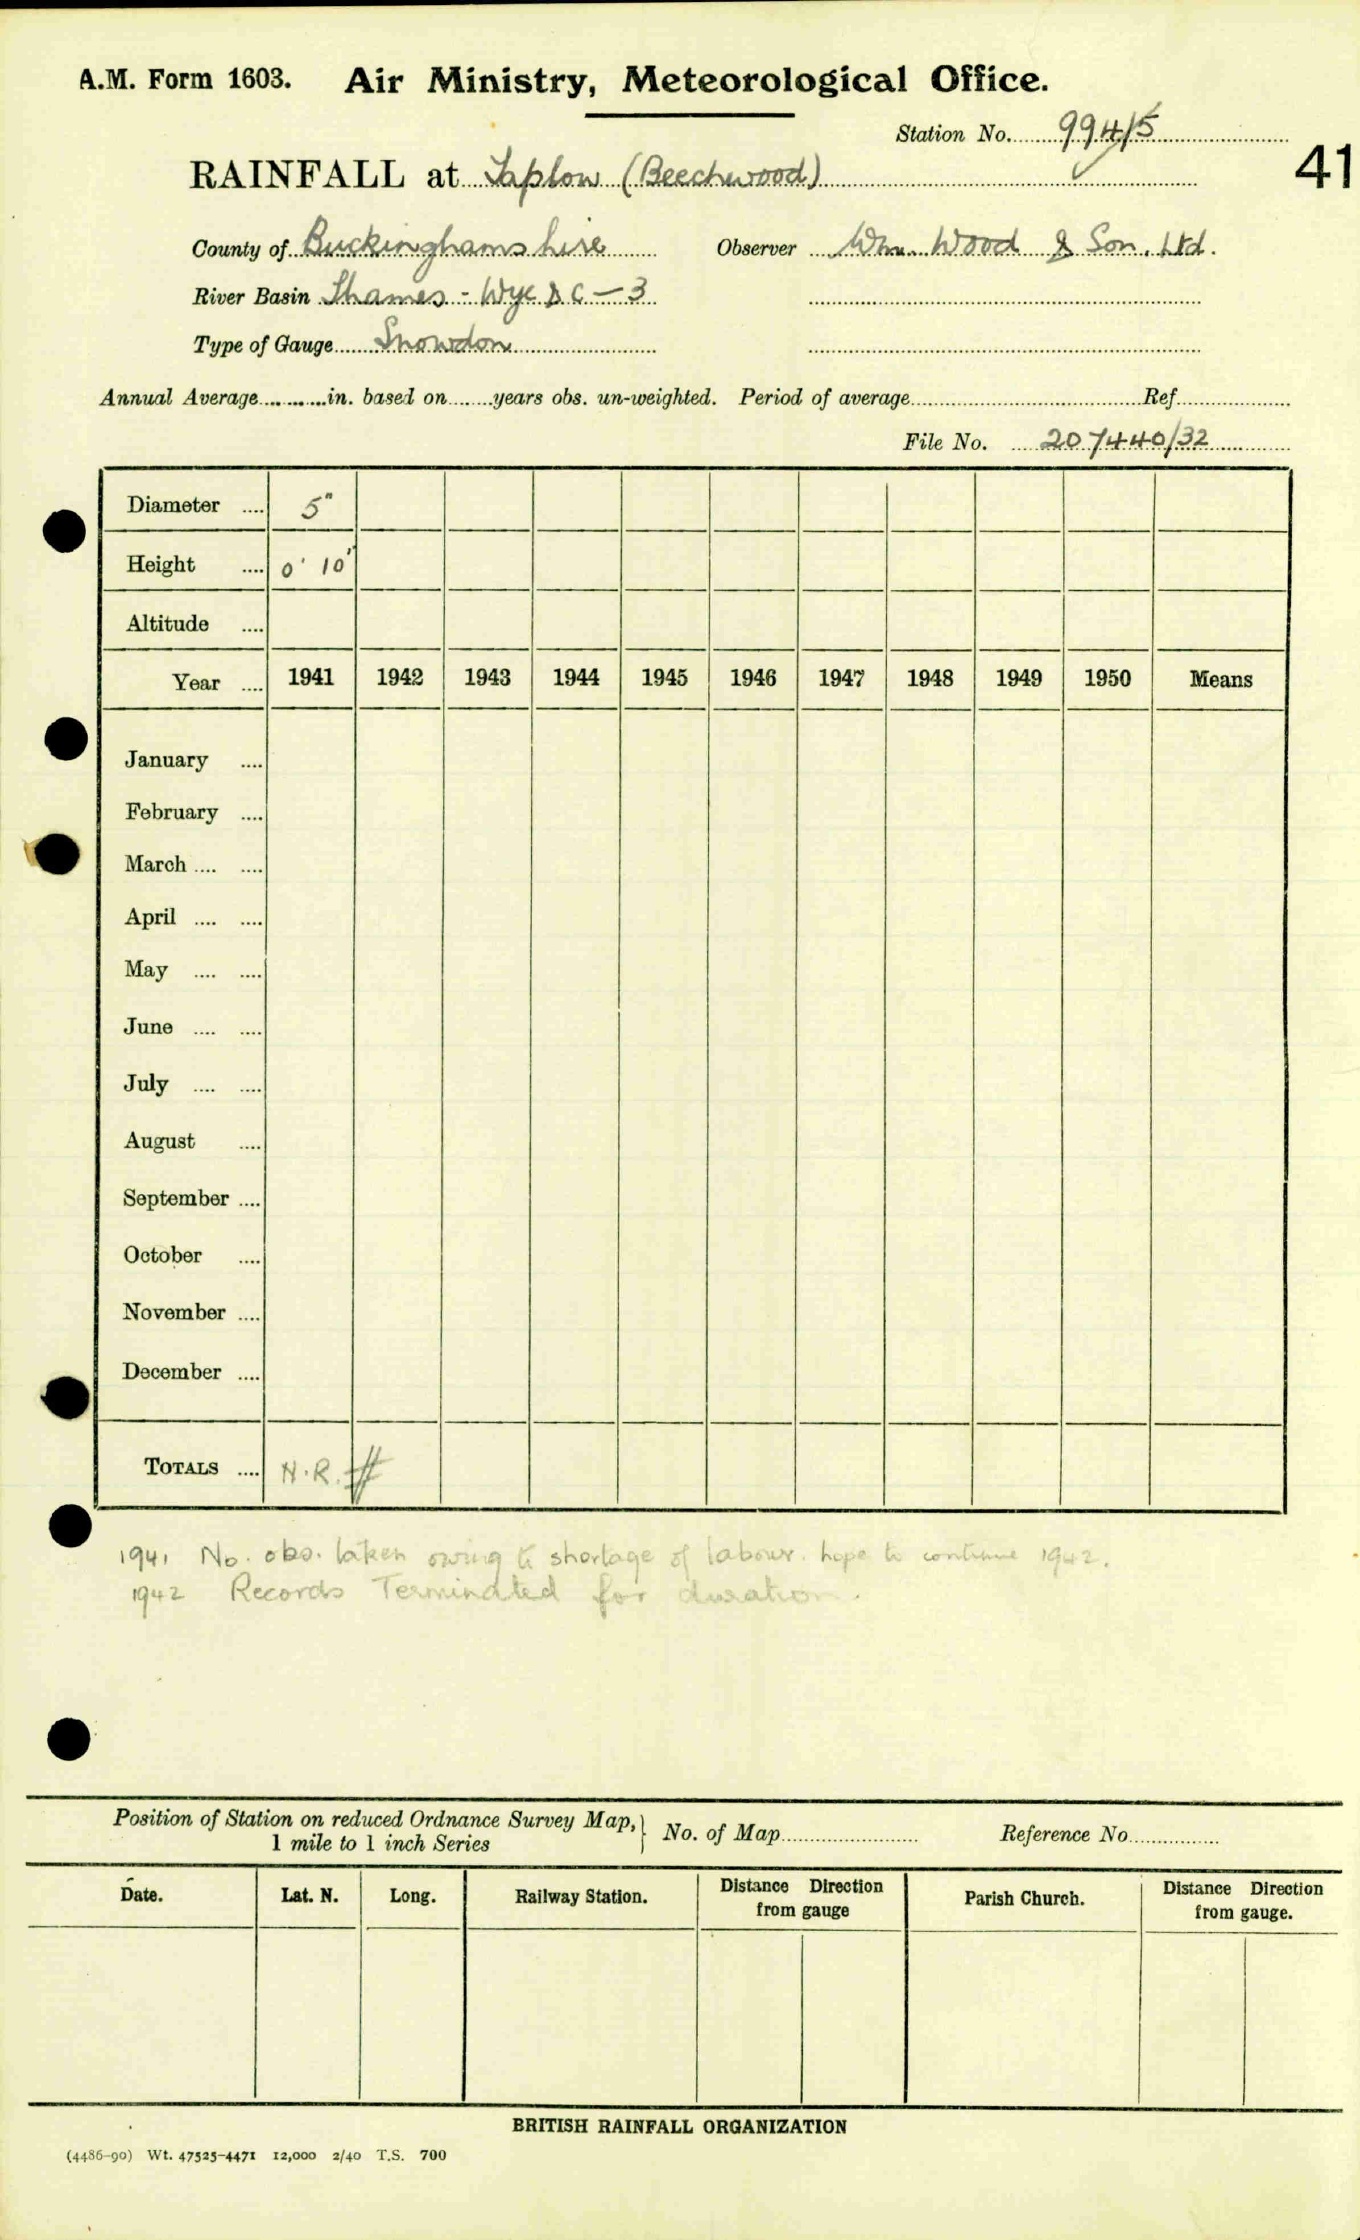 A.M. Form 1603. Air Ministry, Meteorological Office.
Station No. 994/5
41
RAINFALL at Taplow (Beechwood)
County of Buckinghamshire Observer Wm. Wood & Son, Ltd.
River Basin Thames - Wye & C - 3
Type of Gauge Snowdon
Annual Average in. based on years obs. un-weighted. Period of average Ref.
File No. 207440/32
Diameter 5"
Height 0' 10"
Altitude
Year 1941 1942 1943 1944 1945 1946 1947 1948 1949 1950 Means
January
February
March
April
May
June
July
August
September
October
November
December
TOTALS N.R. #
1941 No. obs. taken owing to shortage of labour. hope to continue 1942.
1942 Records Terminated for duration.
Position of Station on reduced Ordnance Survey Map, } No. of Map Reference No.
1 mile to 1 inch Series
Date. Lat. N. Long. Railway Station. Distance Direction from gauge Parish Church. Distance Direction from gauge.
BRITISH RAINFALL ORGANIZATION
(4486-90) Wt. 47525-4471 12,000 2/40 T.S. 700